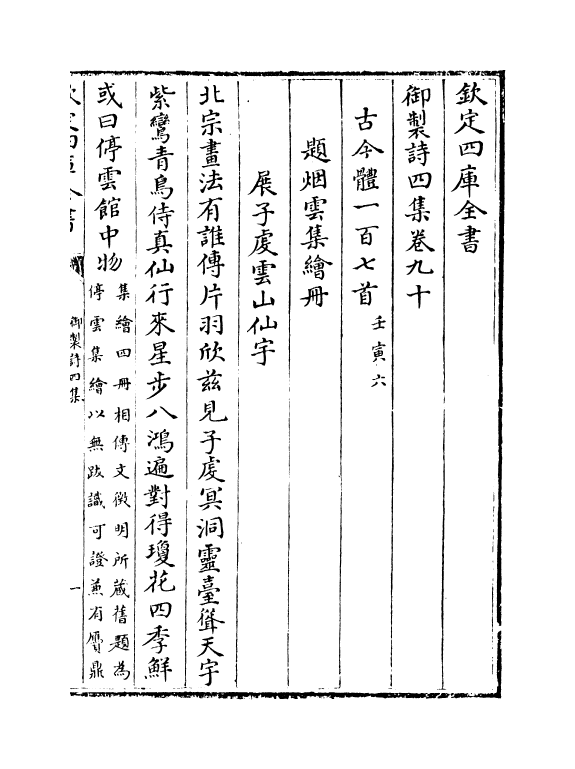 欽定四庫全書
御製詩四集卷九十
古今體一百七首壬寅六
題烟雲集繪冊
展子虔雲山仙宇
北宗畫法有誰傳片羽欣兹見子虔冥洞靈臺聳天宇
紫鸞青鳥侍真仙行來星步八鴻遍對得瓊花四季鮮
或曰停雲館中物
集繪四冊相傳文徴明所蔵舊題為
停雲集繪以無跋識可證兼有贋鼎
御製詩四集
一